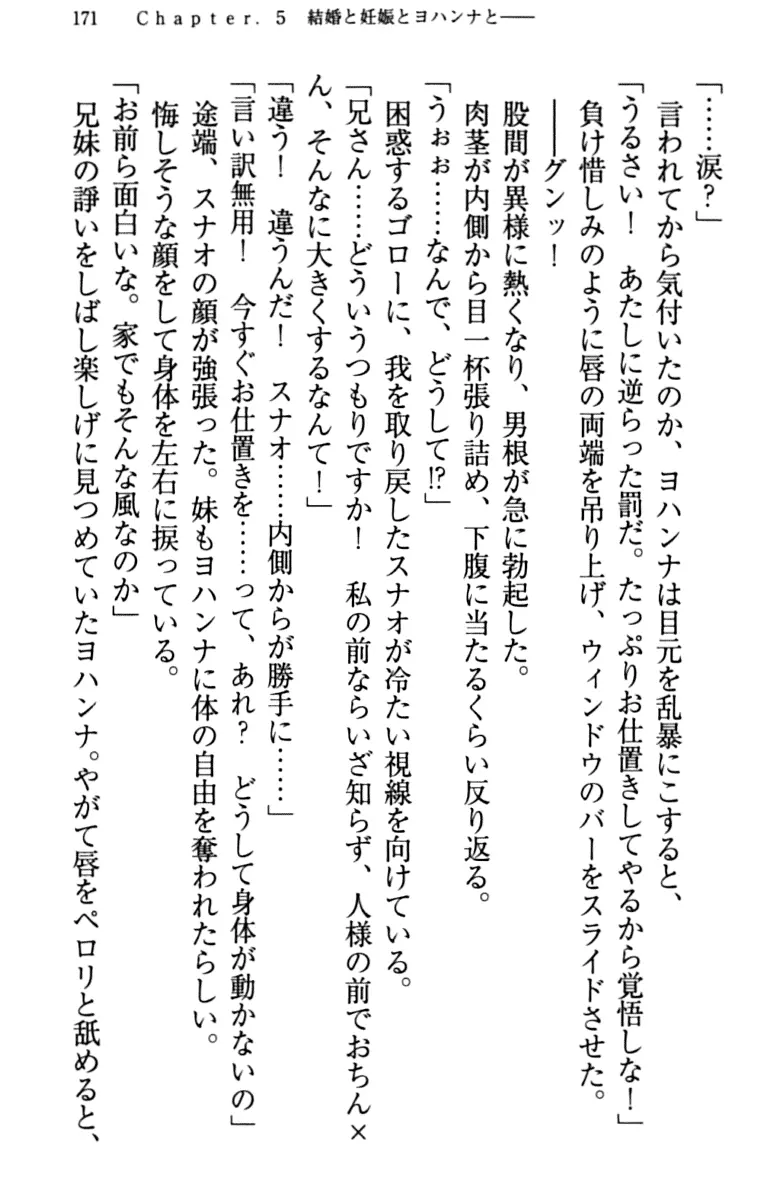 171　Chapter. 5　結婚と妊娠とヨハンナと――
「……涙？」
言われてから気付いたのか、ヨハンナは目元を乱暴にこすると、
「うるさい！　あたしに逆らった罰だ。たっぷりお仕置きしてやるから覚悟しな！」
負け惜しみのように唇の両端を吊り上げ、ウィンドウのバーをスライドさせた。
――グンッ！
股間が異様に熱くなり、男根が急に勃起した。
肉茎が内側から目一杯張り詰め、下腹に当たるくらい反り返る。
「うぉぉ……なんで、どうして!?」
困惑するゴローに、我を取り戻したスナオが冷たい視線を向けている。
「兄さん……どういうつもりですか！　私の前ならいざ知らず、人様の前でおちん×
ん、そんなに大きくするなんて！」
「違う！　違うんだ！　スナオ……内側からが勝手に……」
「言い訳無用！　今すぐお仕置きを……って、あれ？　どうして身体が動かないの」
途端、スナオの顔が強張った。妹もヨハンナに体の自由を奪われたらしい。
悔しそうな顔をして身体を左右に捩っている。
「お前ら面白いな。家でもそんな風なのか」
兄妹の諍いをしばし楽しげに見つめていたヨハンナ。やがて唇をペロリと舐めると、